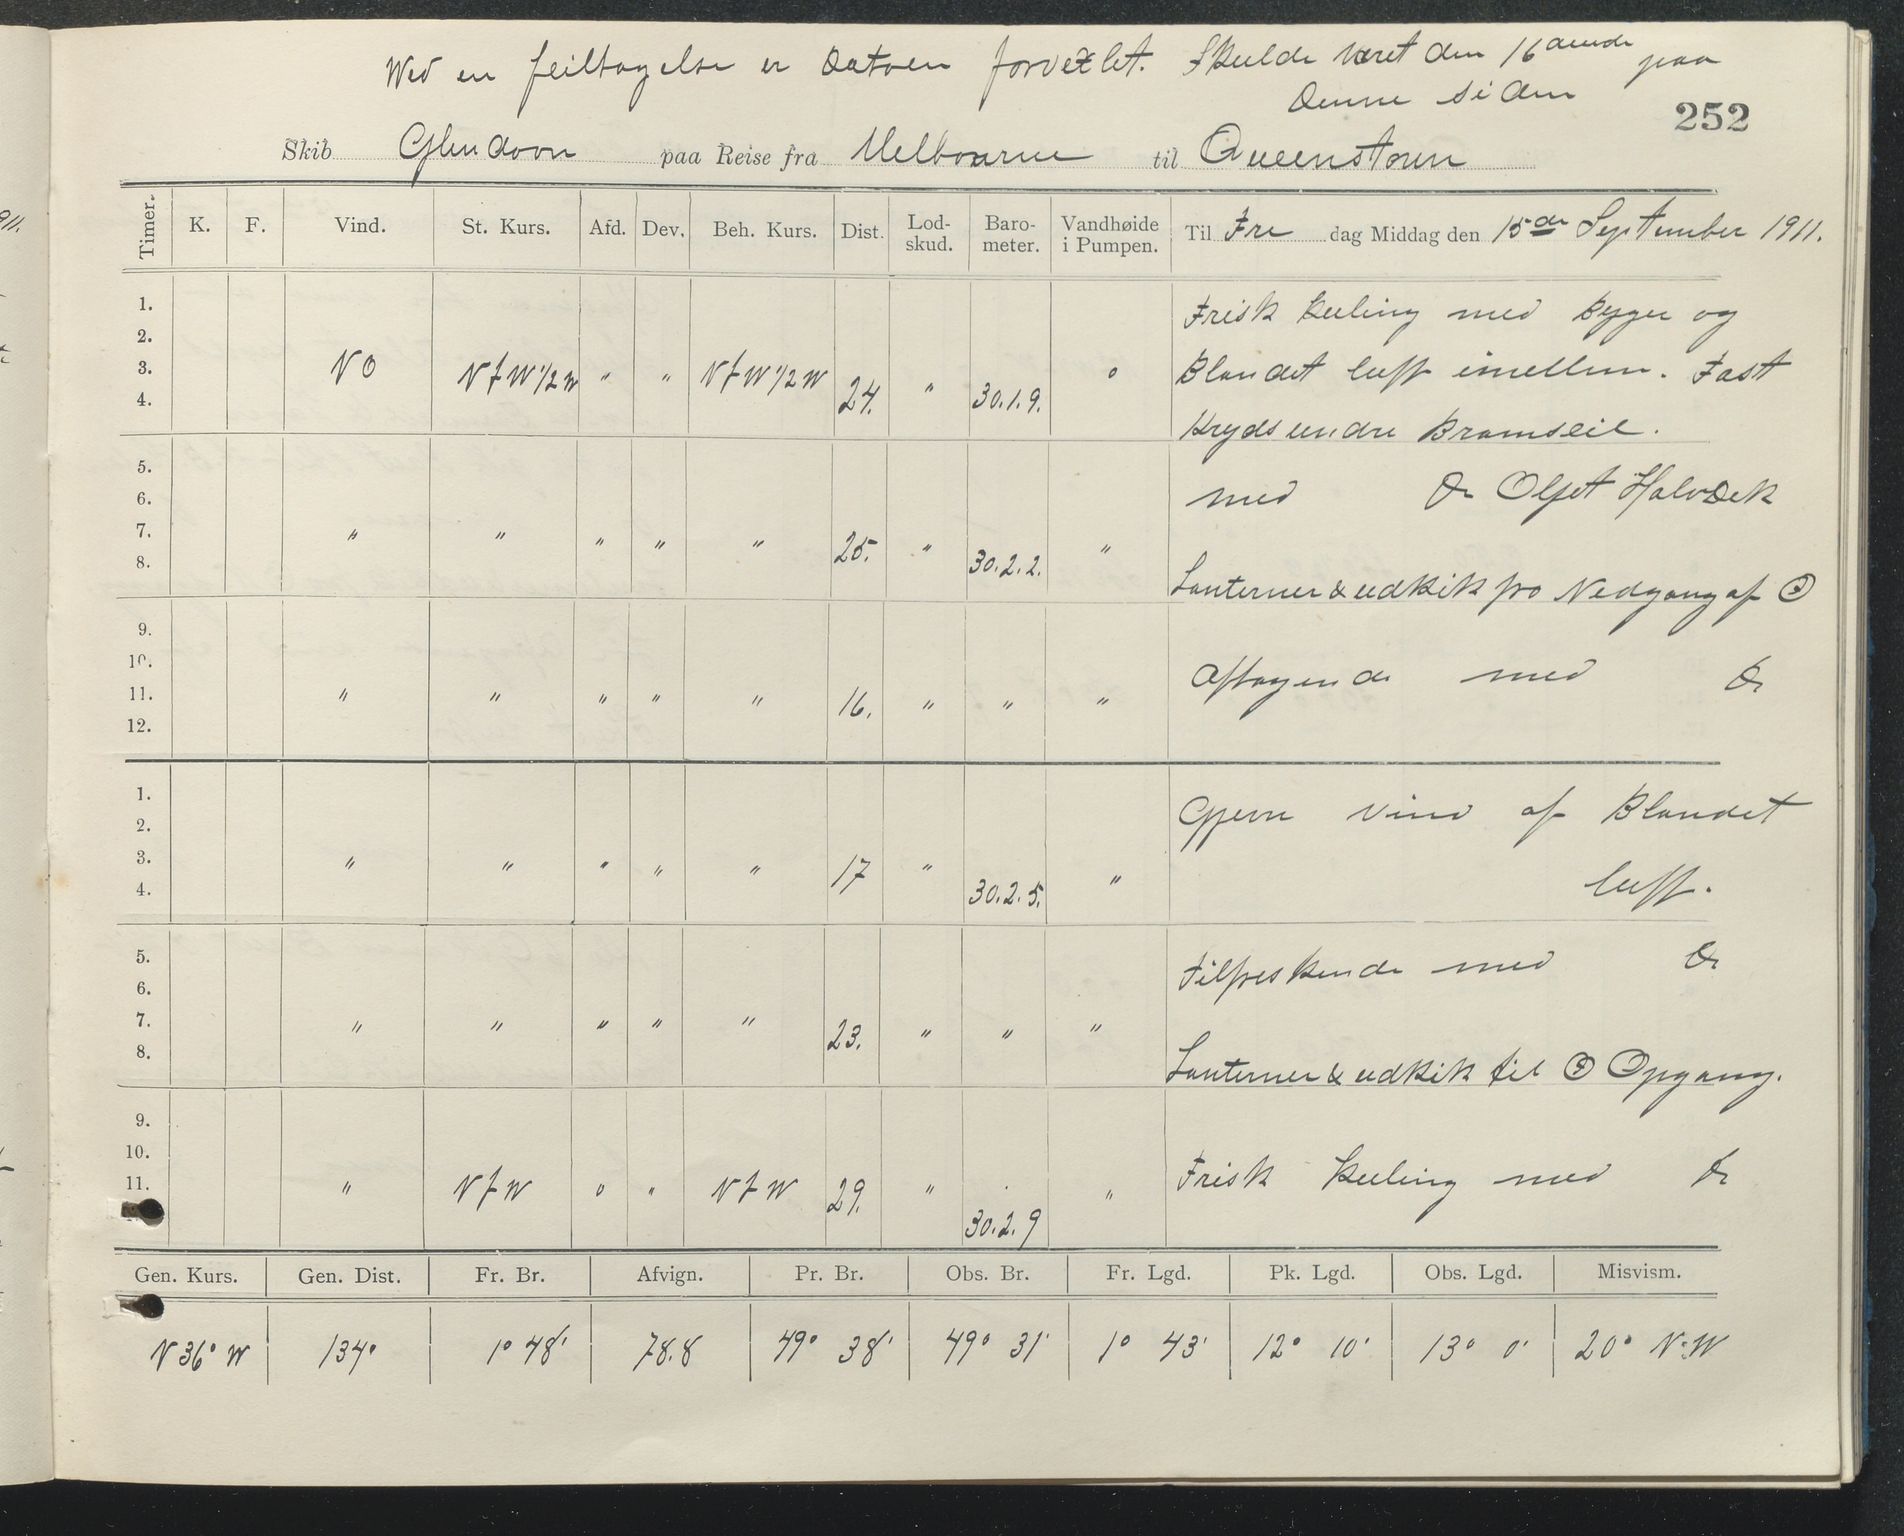 Ved en feiltagelse er Datoen forvexlet. Skulde været den 16 dende paa
Denne siden
252
Skib Glendoon paa Reise fra Melbourne til Queenstown
Timer. K. F. Vind. St. Kurs. Afd. Dev. Beh. Kurs. Dist. Lod-skud. Baro-meter. Vandhøide i Pumpen. Til Fre dag Middag den 15de September 1911.
1. Frisk Kuling med Byger og
2.
3. NO N t W 1/2 W " " N t W 1/2 W 24. " 30.1.9. o Blandet luft imellem. Fast
4. Kryds undre Bramseil.
5. med Do Oljet Halvdek
6.
7. " " " " " 25. " 30.2.2. "
8. Lanterner & udkik fra Nedgang af ☉
9.
10. Aftagende med Do
11. " " " " " 16. " " "
12.
1. Gjevn vind af Blandet
2.
3. " " " " " 17 " 30.2.5. "
4. luft.
5. Tilfreskende med Do
6.
7. " " " " " 23. " " "
8. Lanterner & udkik til ☉ Opgang.
9.
10.
11. " N t W " " N t W 29. " 30.2.9 " Frisk Kuling med Do
Gen. Kurs. Gen. Dist. Fr. Br. Afvign. Pr. Br. Obs. Br. Fr. Lgd. Pk. Lgd. Obs. Lgd. Misvism.
N 36° W 134° 1° 48' 78.8 49° 38' 49° 31' 1° 43' 12° 10' 13° 0' 20° N.W
911.